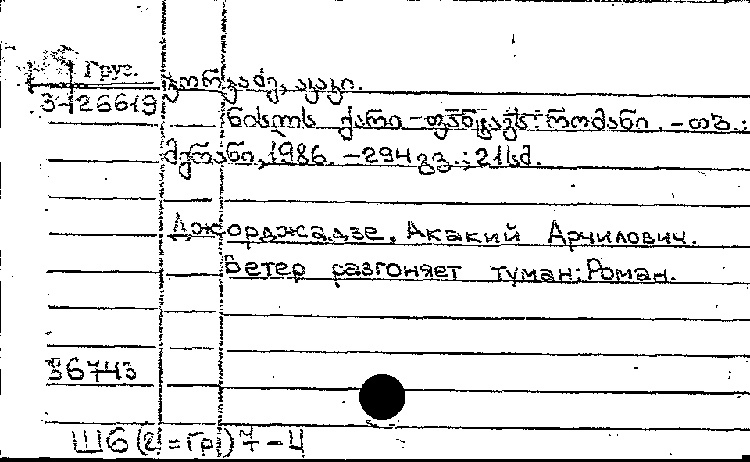 Груз.
ჯორჯაძე, აკაკი.
3-26619
ნისლს ქარი - ფანტავს: რომანი. - თბ.:
მერანი, 1986. - 294 გვ.; 21 სმ.
Джорджадзе, Акакий Арчилович.
Ветер разгоняет туман: Роман.
36743
Ш6(2=Гр)7-4